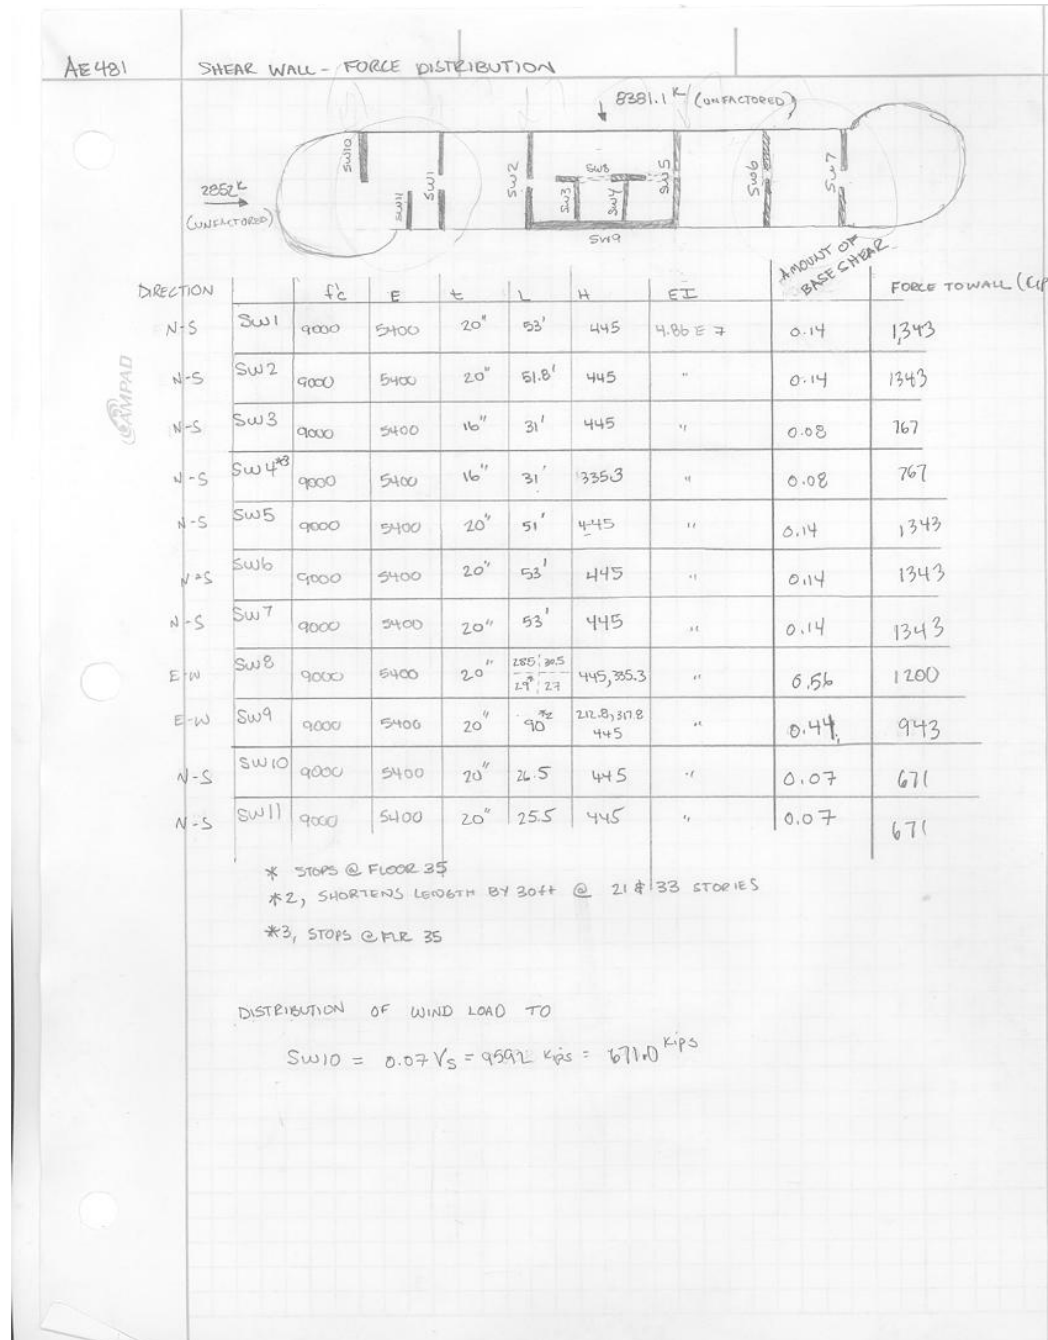 AE481 SHEAR WALL - FORCE DISTRIBUTION
8381.1 K (UNFACTORED)
SW10
SW11
SW1
SW2
SW3
SW8
SW4
SW5
SW6
SW7
SW9
2852K
(UNFACTORED)
DIRECTION f'c E t L H EI AMOUNT OF BASE SHEAR FORCE TO WALL (KIP
N-S SW1 9000 5400 20" 53' 445 4.86 E 7 0.14 1,343
N-S SW2 9000 5400 20" 51.8' 445 " 0.14 1343
N-S SW3 9000 5400 16" 31' 445 " 0.08 767
N-S SW4*3 9000 5400 16" 31' 335.3 " 0.08 767
N-S SW5 9000 5400 20" 51' 445 " 0.14 1343
N-S SW6 9000 5400 20" 53' 445 " 0.14 1343
N-S SW7 9000 5400 20" 53' 445 " 0.14 1343
E-W SW8 9000 5400 20" 28.5 30.5 29* 27 445, 335.3 " 0.56 1200
E-W SW9 9000 5400 20" 90*2 212.8, 317.8 445 " 0.44 943
N-S SW10 9000 5400 20" 26.5 445 " 0.07 671
N-S SW11 9000 5400 20" 25.5 445 " 0.07 671
* STOPS @ FLOOR 35
*2, SHORTENS LENGTH BY 30ft @ 21 & 33 STORIES
*3, STOPS @ FLR 35
DISTRIBUTION OF WIND LOAD TO
SW10 = 0.07 Vs = 9592 kips = 671.0 kips
AMPAD